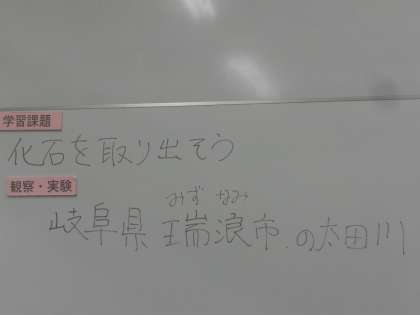 学習課題
化石を取り出そう
観察・実験
みずなみ
岐阜県瑞浪市の太田川